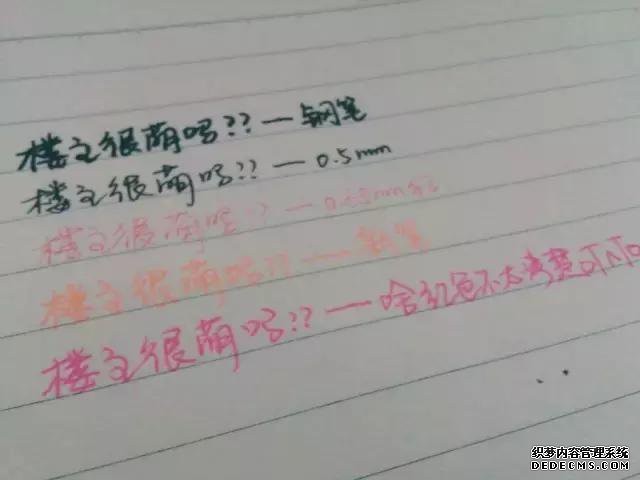 楼主很萌吗??—钢笔
楼主很萌吗??—0.5mm
楼主很萌吗??—0.
楼主很萌吗??—钢笔
楼主很萌吗??—啥红色不太清楚
织梦内容管理系统
DEDECMS.COM